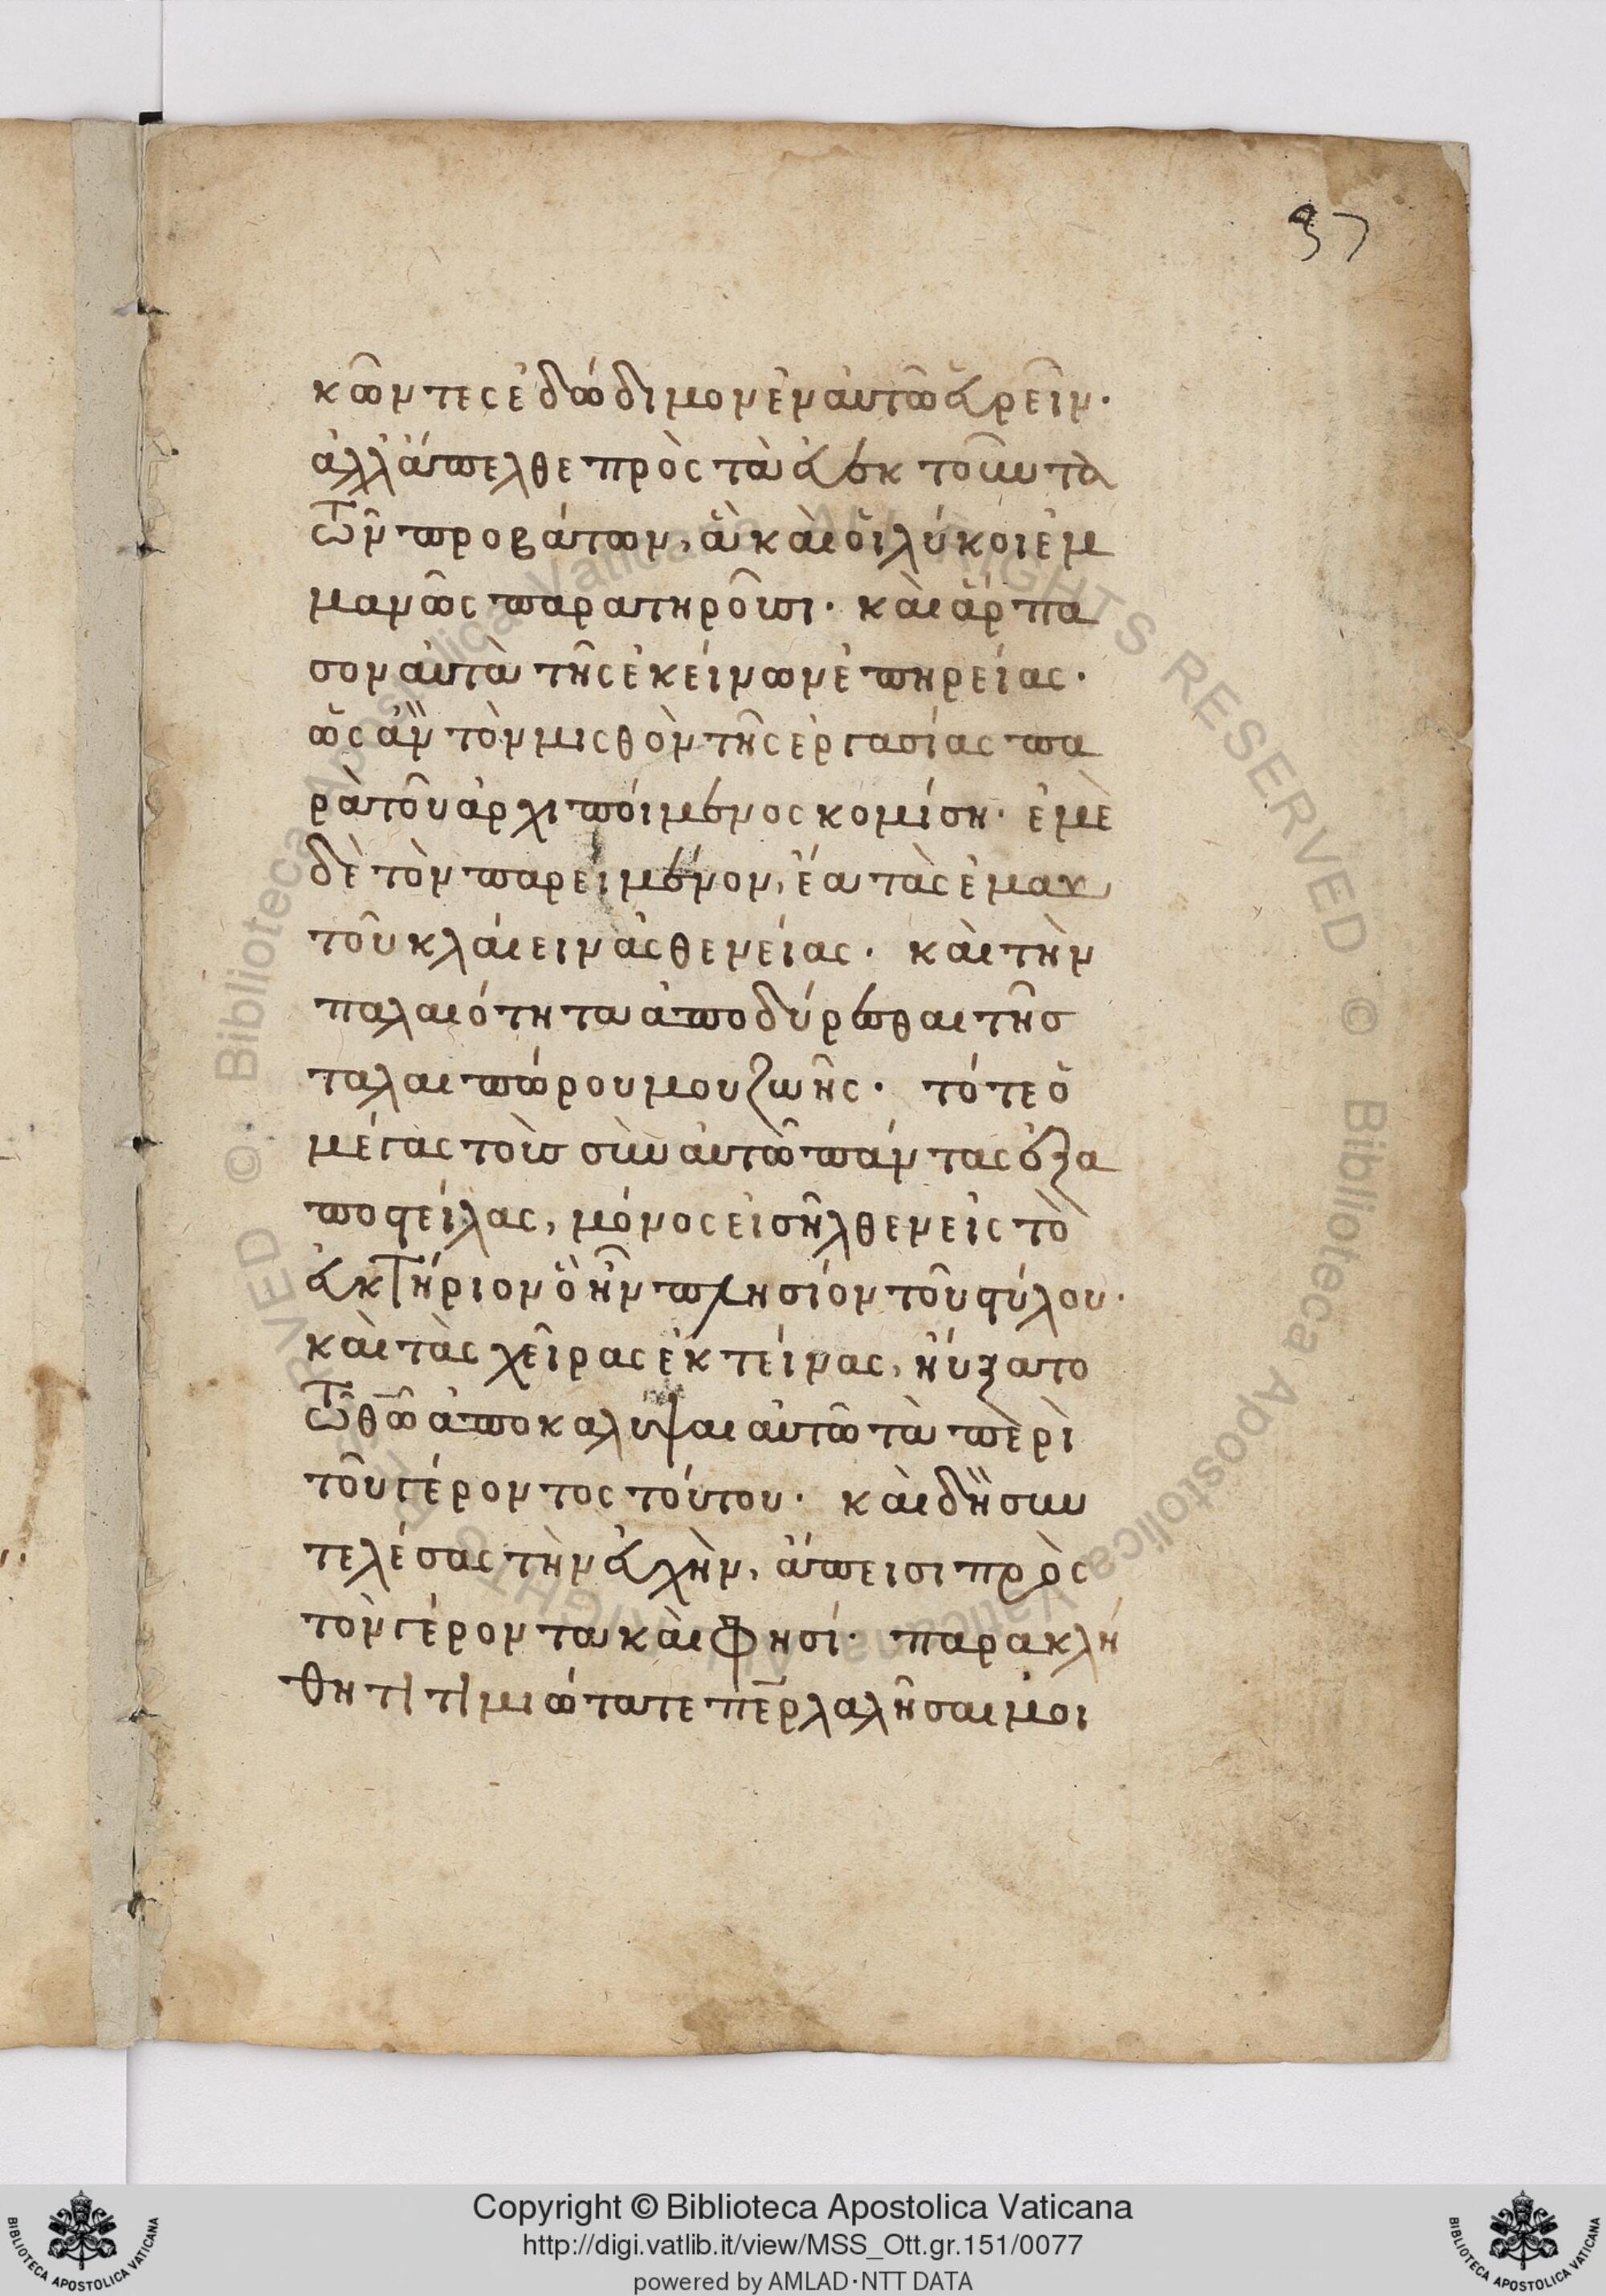 37
κῶντες ἐδώδιμον ἐν αὐτῶ εὑρεῖν·
ἀλλ' ἄπελθε πρὸς τὰ ἐκ τούτου τὰ
τῶν προβάτων, ἃ καὶ οἱ λύκοι ἐμ
μανῶς παρατηροῦσι· καὶ ἅρπα
σον αὐτὰ τῆς ἐκείνων ἐπηρείας·
ὡς ἂν τὸν μισθὸν τῆς ἐργασίας πα
ρὰ τοῦ ἀρχιποίμενος κομίση· ἐμὲ
δὲ τὸν παρειμένον, ἔα τὰς ἐμαυ
τοῦ κλάιειν ἀσθενείας· καὶ τὴν
παλαιότητα ἀποδύρεσθαι τῆς
ταλαιπώρου μου ζωῆς· τότε ὁ
μέγας τοὺς σὺν αὐτῶ πάντας ἐξα
ποστείλας, μόνος εἰσῆλθεν εἰς τὸ
εὐκτήριον ὃ ἦν πλησίον τοῦ στύλου·
καὶ τὰς χεῖρας ἐκτείνας, ηὔξατο
τῶ θῶ ἀποκαλύψαι αὐτῶ τὰ περὶ
τοῦ γέροντος τούτου· καὶ δὴ συν
τελέσας τὴν εὐχὴν, ἄπεισι πρὸς
τὸν γέροντα καὶ φησί· παρακλή
θητι τιμιώτατε περ λαλῆσαι μοι
Copyright © Biblioteca Apostolica Vaticana
http://digi.vatlib.it/view/MSS_Ott.gr.151/0077
powered by AMLAD·NTT DATA
BIBLIOTECA APOSTOLICA VATICANA
BIBLIOTECA APOSTOLICA VATICANA